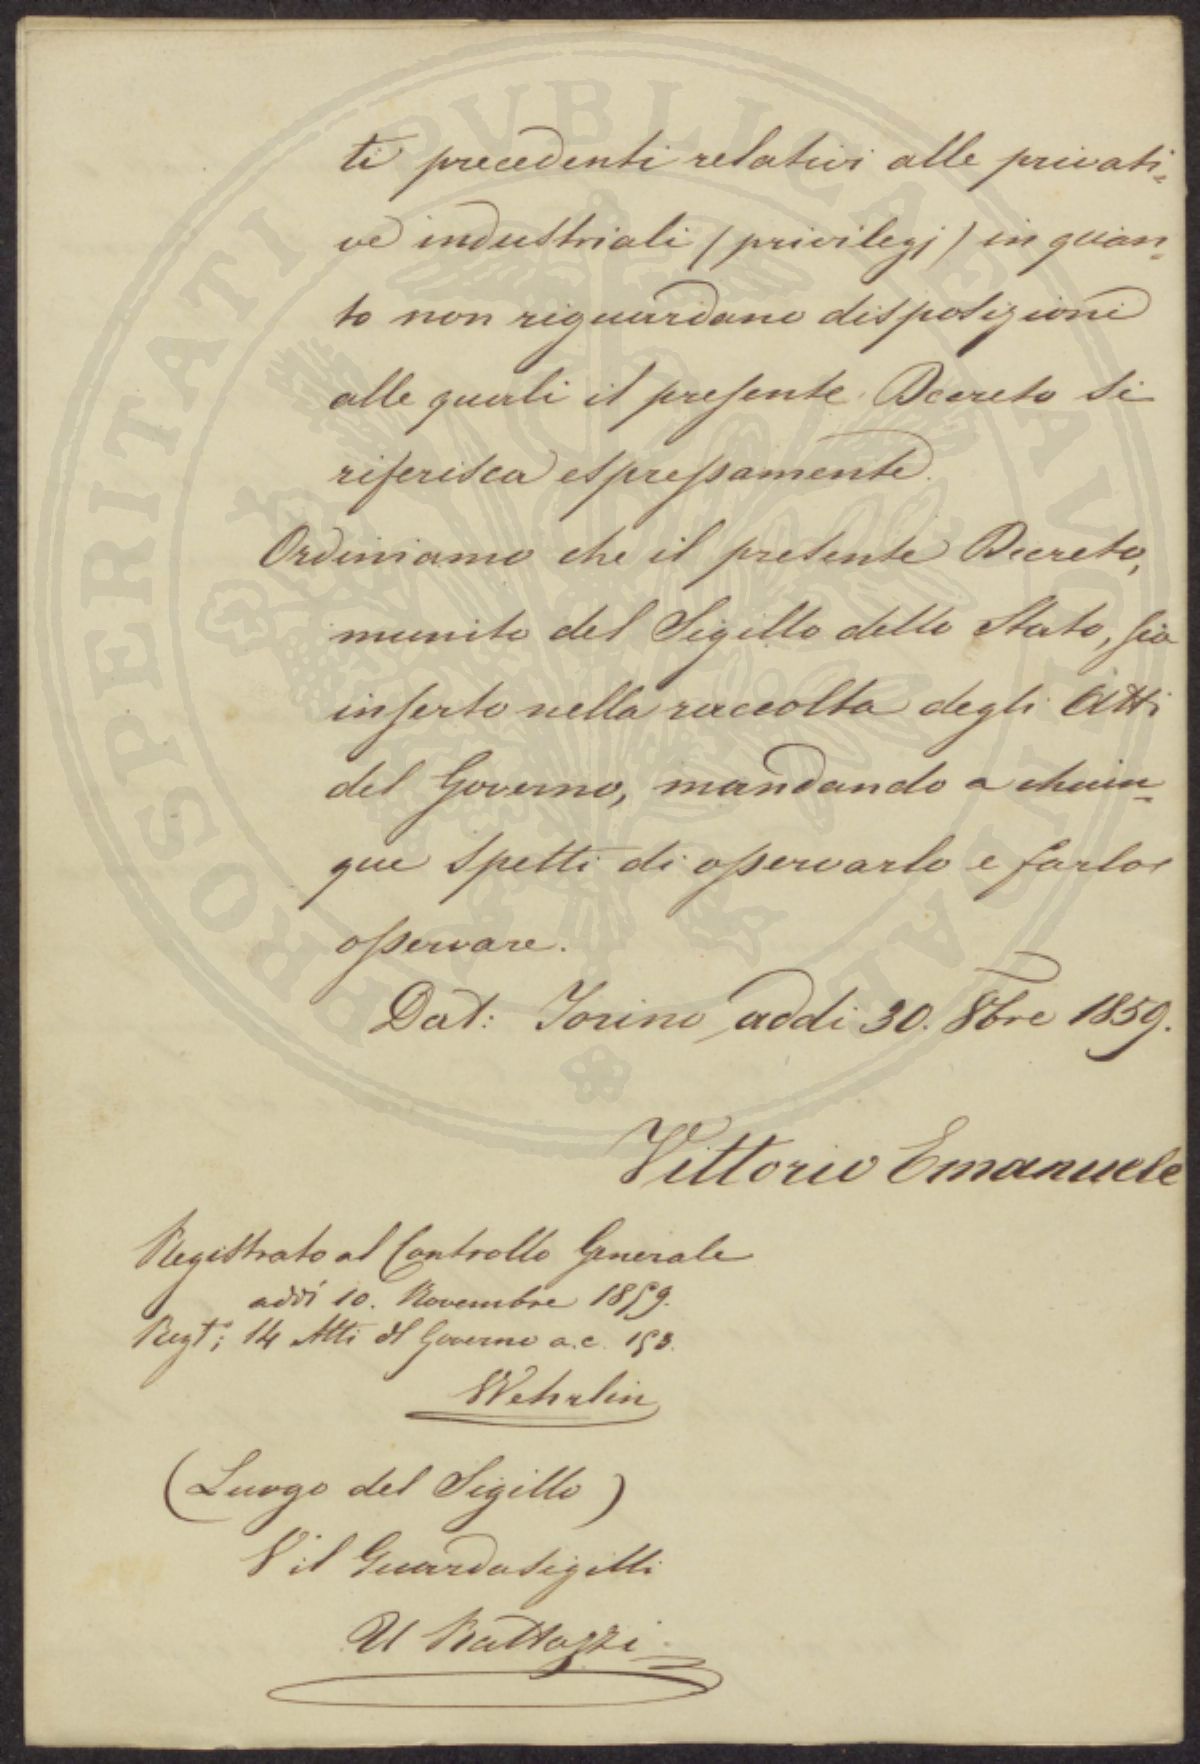 ti precedenti relativi alle privati=
ve industriali (privilegj) in quan=
to non riguardano disposizioni
alle quali il presente Decreto si
riferisca espressamente.
Ordiniamo che il presente Decreto,
munito del Sigillo dello Stato, sia
inserto nella raccolta degli Atti
del Governo, mandando a chiun=
que spetti di osservarlo e farlo
osservare.
Dat: Torino addi 30. 8bre 1859.
Vittorio Emanuele
Registrato al Controllo Generale
addi 10. Novembre 1859.
Regto: 14 Atti del Governo a.c. 153.
Wehrlin
(Luogo del Sigillo)
V il Guardasigilli
U Rattazzi
PROSPERITATI PUBLICAE